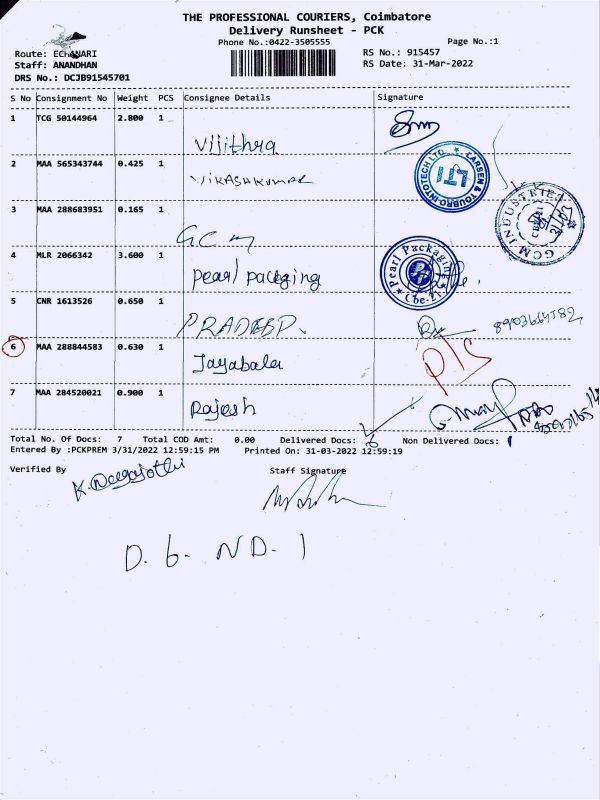 THE PROFESSIONAL COURIERS, Coimbatore
Delivery Runsheet - PCK
Phone No.:0422-3505555
Page No.:1
Route: ECHANARI
RS No.: 915457
Staff: ANANDHAN
RS Date: 31-Mar-2022
DRS No.: DCJB91545701
S No Consignment No Weight PCS Consignee Details Signature
1 TCG 50144964 2.800 1
Vijithra
2 MAA 565343744 0.425 1
VIKASHKUMAR
LARSEN & TOUBRO INFOTECH LTD. LTI
3 MAA 288683951 0.165 1
GCM
GCM INDUSTRIES
31/03
4 MLR 2066342 3.600 1
Pearl packging
Pearl Packaging Cbe-21
5 CNR 1613526 0.650 1
PRADEEP.
6 MAA 288844583 0.630 1
Jayabala
P/S
7 MAA 284520021 0.900 1
Rajesh
Total No. Of Docs: 7 Total COD Amt: 0.00 Delivered Docs: 6 Non Delivered Docs: 1
Entered By :PCKPREM 3/31/2022 12:59:15 PM Printed On: 31-03-2022 12:59:19
Verified By Staff Signature
D. 6. ND. 1